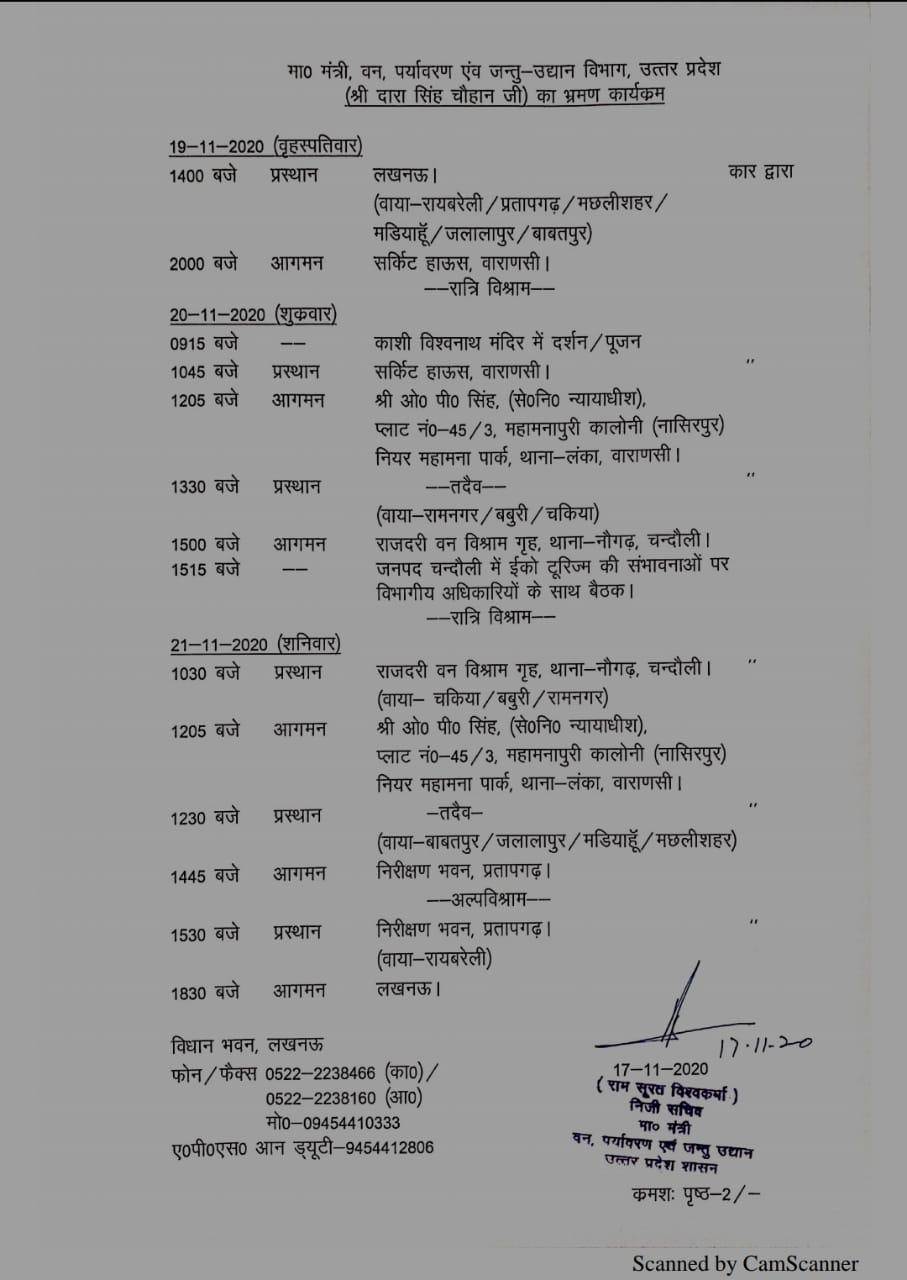 मा0 मंत्री, वन, पर्यावरण एंव जन्तु–उद्यान विभाग, उत्तर प्रदेश
(श्री दारा सिंह चौहान जी) का भ्रमण कार्यक्रम
19–11–2020 (वृहस्पतिवार)
1400 बजे प्रस्थान लखनऊ। कार द्वारा
(वाया–रायबरेली/प्रतापगढ़/मछलीशहर/
मडियाहूॅ/जलालापुर/बाबतपुर)
2000 बजे आगमन सर्किट हाऊस, वाराणसी।
––रात्रि विश्राम––
20–11–2020 (शुक्रवार)
0915 बजे –– काशी विश्वनाथ मंदिर में दर्शन/पूजन
1045 बजे प्रस्थान सर्किट हाऊस, वाराणसी। ’’
1205 बजे आगमन श्री ओ0 पी0 सिंह, (से0नि0 न्यायाधीश),
प्लाट नं0–45/3, महामनापुरी कालोनी (नासिरपुर)
नियर महामना पार्क, थाना–लंका, वाराणसी।
1330 बजे प्रस्थान ––तदैव–– ’’
(वाया–रामनगर/बबुरी/चकिया)
1500 बजे आगमन राजदरी वन विश्राम गृह, थाना–नौगढ़, चन्दौली।
1515 बजे –– जनपद चन्दौली में ईको टूरिज्म की संभावनाओं पर
विभागीय अधिकारियों के साथ बैठक।
––रात्रि विश्राम––
21–11–2020 (शनिवार)
1030 बजे प्रस्थान राजदरी वन विश्राम गृह, थाना–नौगढ़, चन्दौली। ’’
(वाया– चकिया/बबुरी/रामनगर)
1205 बजे आगमन श्री ओ0 पी0 सिंह, (से0नि0 न्यायाधीश),
प्लाट नं0–45/3, महामनापुरी कालोनी (नासिरपुर)
नियर महामना पार्क, थाना–लंका, वाराणसी।
1230 बजे प्रस्थान –तदैव– ’’
(वाया–बाबतपुर/जलालापुर/मडियाहूॅ/मछलीशहर)
1445 बजे आगमन निरीक्षण भवन, प्रतापगढ़।
––अल्पविश्राम––
1530 बजे प्रस्थान निरीक्षण भवन, प्रतापगढ़। ’’
(वाया–रायबरेली)
1830 बजे आगमन लखनऊ।
विधान भवन, लखनऊ
फोन/फैक्स 0522–2238466 (का0)/
0522–2238160 (आ0)
मो0–09454410333
ए0पी0एस0 आन ड्यूटी–9454412806
17.11.20
17–11–2020
(राम सूरत विश्वकर्मा)
निजी सचिव
मा० मंत्री
वन, पर्यावरण एवं जन्तु उद्यान
उत्तर प्रदेश शासन
कमशः पृष्ठ–2/–
Scanned by CamScanner